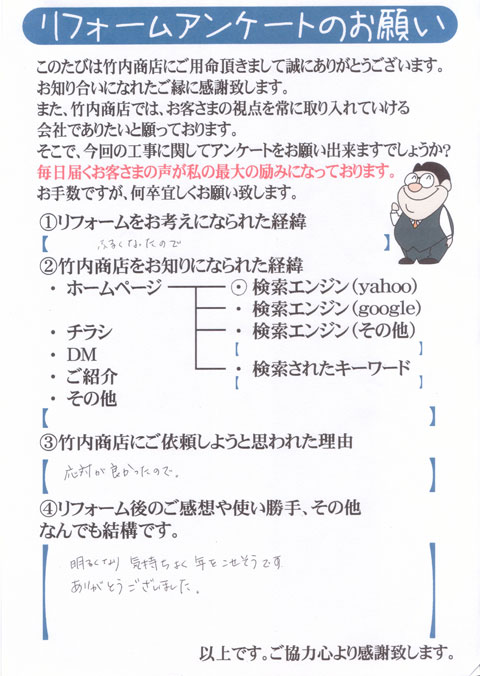 リフォームアンケートのお願い
このたびは竹内商店にご用命頂きまして誠にありがとうございます。
お知り合いになれたご縁に感謝致します。
また、竹内商店では、お客さまの視点を常に取り入れていける
会社でありたいと願っております。
そこで、今回の工事に関してアンケートをお願い出来ますでしょうか?
毎日届くお客さまの声が私の最大の励みになっております。
お手数ですが、何卒宜しくお願い致します。
①リフォームをお考えになられた経緯
【 ふるくなったので 】
②竹内商店をお知りになられた経緯
・ ホームページ
・ 検索エンジン(yahoo)
・ 検索エンジン(google)
・ 検索エンジン(その他)
【 】
・ 検索されたキーワード
【 】
・ チラシ
・ DM
・ ご紹介
・ その他
【 】
③竹内商店にご依頼しようと思われた理由
【 応対が良かったので。 】
④リフォーム後のご感想や使い勝手、その他
なんでも結構です。
【 明るくなり 気持ちよく 年をこせそうです
ありがとうございました。 】
以上です。ご協力心より感謝致します。